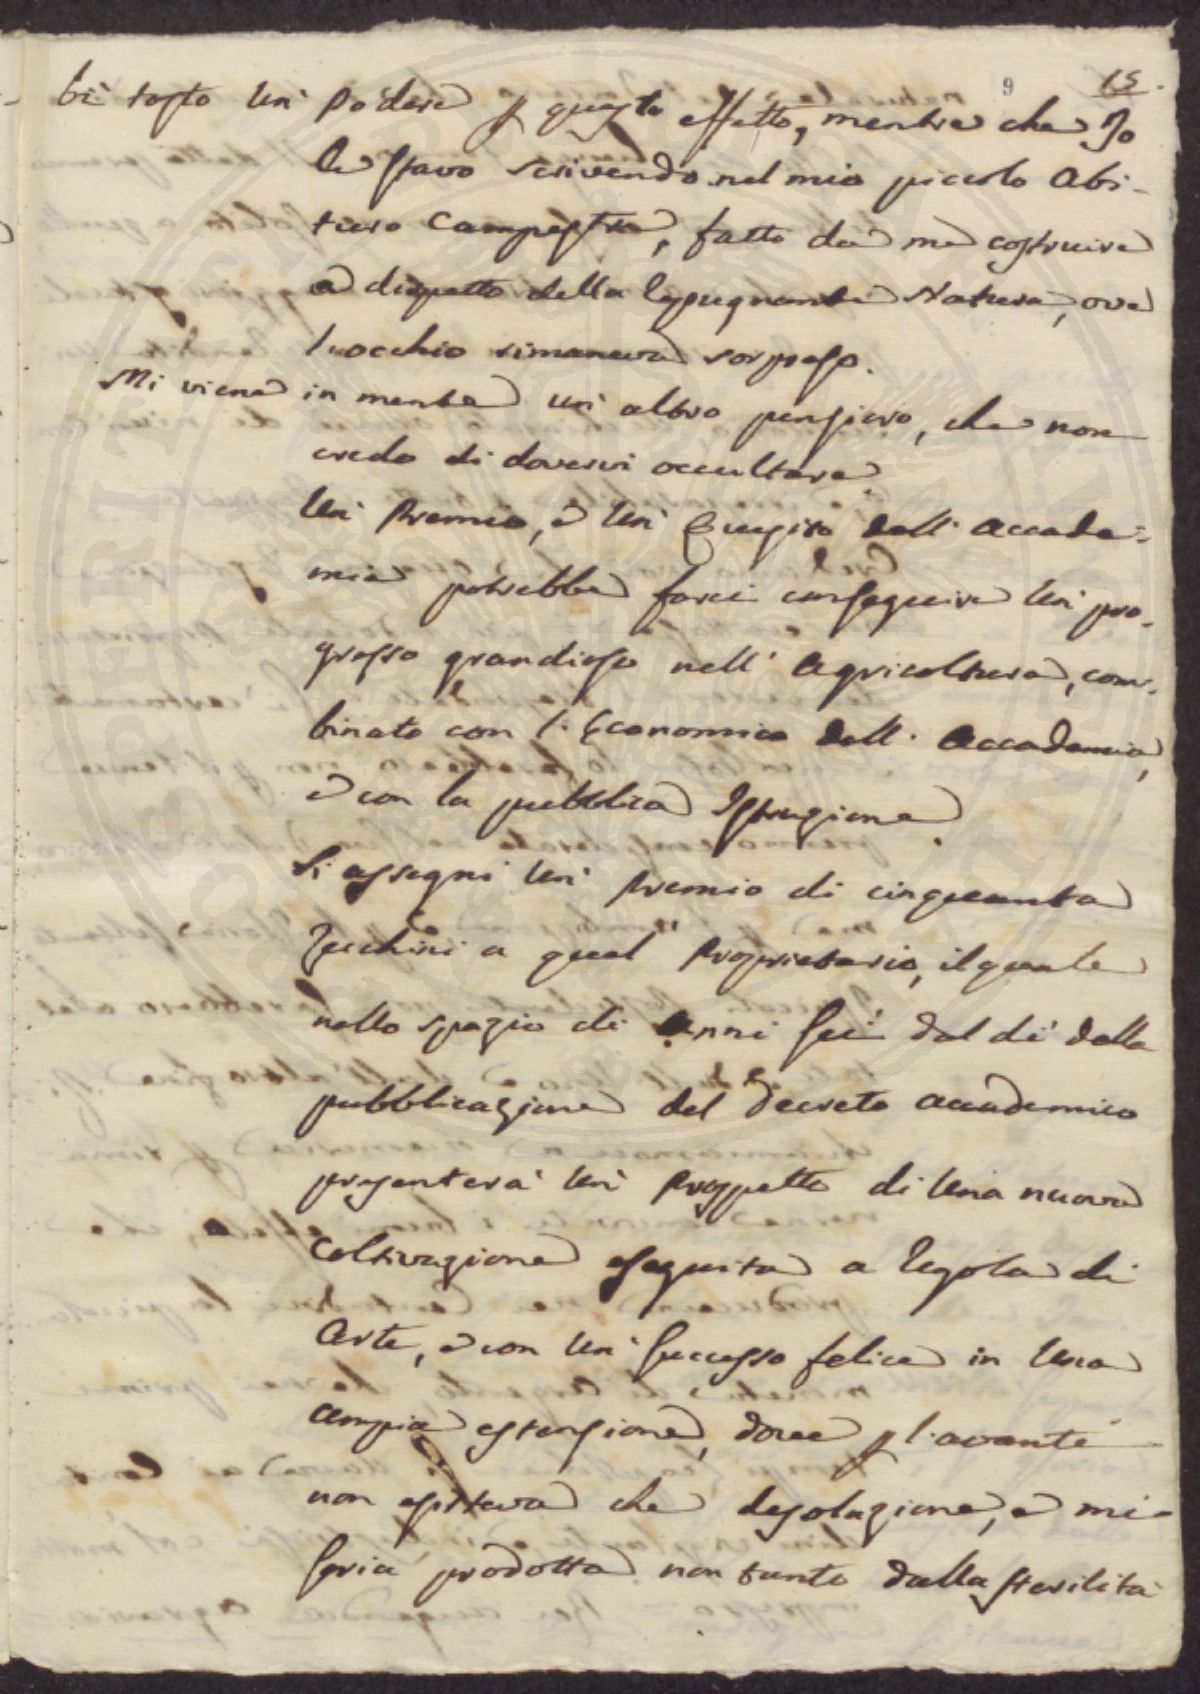 9 15.
bi tosto un' podere p questo effetto, mentre che Io
le stavo scrivendo nel mio piccolo abi-
turo Campestre, fatto da me costruire
a dispetto della repugnante Natura, ove
l'occhio rimaneva sorpreso.
Mi viene in mente un' altro pensiero, che non
credo di dovervi occultare
Un' Premio, e un' dell' Accade-
mia potrebbe farci conseguire un' pro-
gresso grandioso nell' Agricoltura, com-
binato con l' Economico dell' Accademia,
e con la pubblica Istruzione.
Si assegni un' Premio di cinquanta
Zecchini a quel Proprietario, il quale
nello spazio di anni sei dal dì della
pubblicazione del Decreto accademico
presenterà un' Prospetto di una nuova
Coltivazione eseguita a regola di
Arte, e con un' successo felice in una
ampia estensione, dove p l'avante
non esisteva che desolazione, e mi-
seria prodotta non tanto dalla sterilità